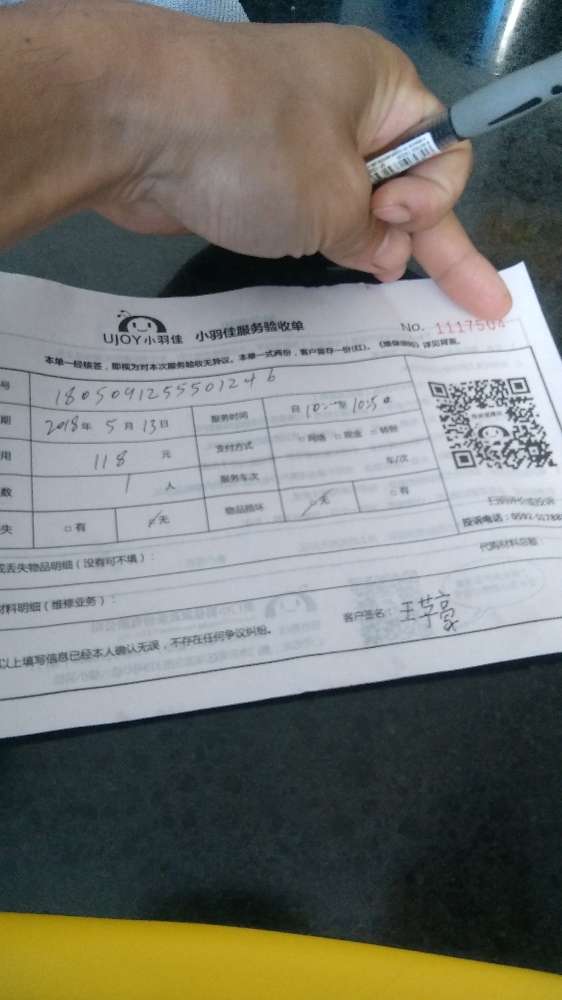 UJOY小羽佳 小羽佳服务验收单 No. 1117504
本单一经核签，即视为对本次服务验收无异议。本单一式两份，客户留存一份(红)。《维保须知》详见背面。
号 1805091255501246
期 2018年 5月 13日 服务时间 日 10:50
用 118 元 支付方式 □网络 □现金 □转账
数 1 人 服务车次 车/次
失 □有 ✓无 物品损坏 ✓无 □有
扫码评价或投诉
投诉电话：0592-5178
或丢失物品明细（没有可不填）：
代购材料总额：
材料明细（维修业务）：
以上填写信息已经本人确认无误，不存在任何争议纠纷。 客户签名：